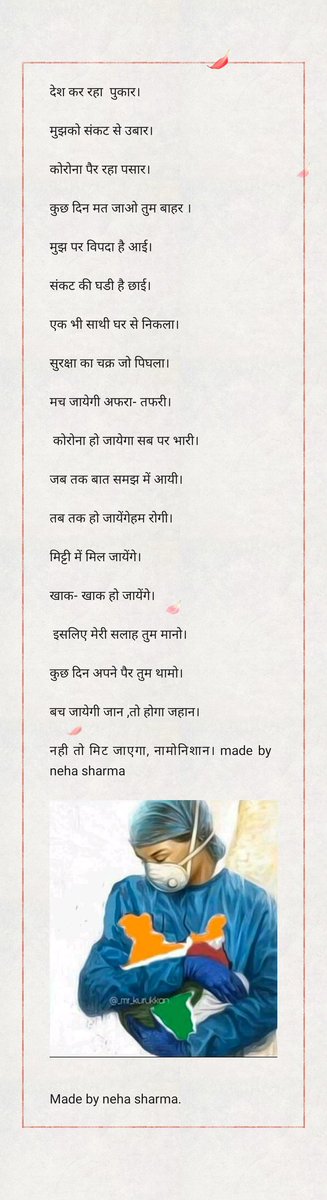 देश कर रहा  पुकार।
मुझको संकट से उबार।
कोरोना पैर रहा पसार।
कुछ दिन मत जाओ तुम बाहर ।
मुझ पर विपदा है आई।
संकट की घडी है छाई।
एक भी साथी घर से निकला।
सुरक्षा का चक्र जो पिघला।
मच जायेगी अफरा- तफरी।
कोरोना हो जायेगा सब पर भारी।
जब तक बात समझ में आयी।
तब तक हो जायेंगेहम रोगी।
मिट्टी में मिल जायेंगे।
खाक- खाक हो जायेंगे।
इसलिए मेरी सलाह तुम मानो।
कुछ दिन अपने पैर तुम थामो।
बच जायेगी जान ,तो होगा जहान।
नही तो मिट जाएगा, नामोनिशान। made by
neha sharma
@_mr_kurukkan
Made by neha sharma.